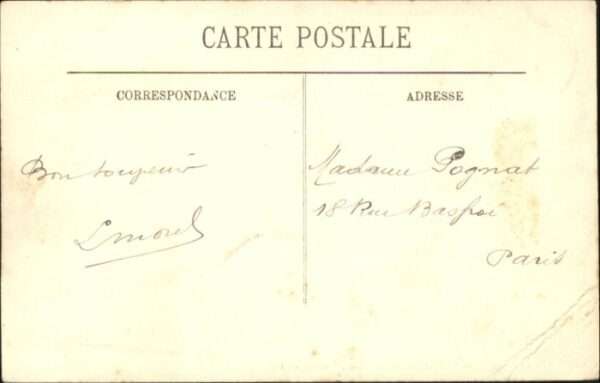 CARTE POSTALE
CORRESPONDANCE
ADRESSE
Bon souvenir
L morel
Madame Pognat
18 Rue Basfroi
Paris